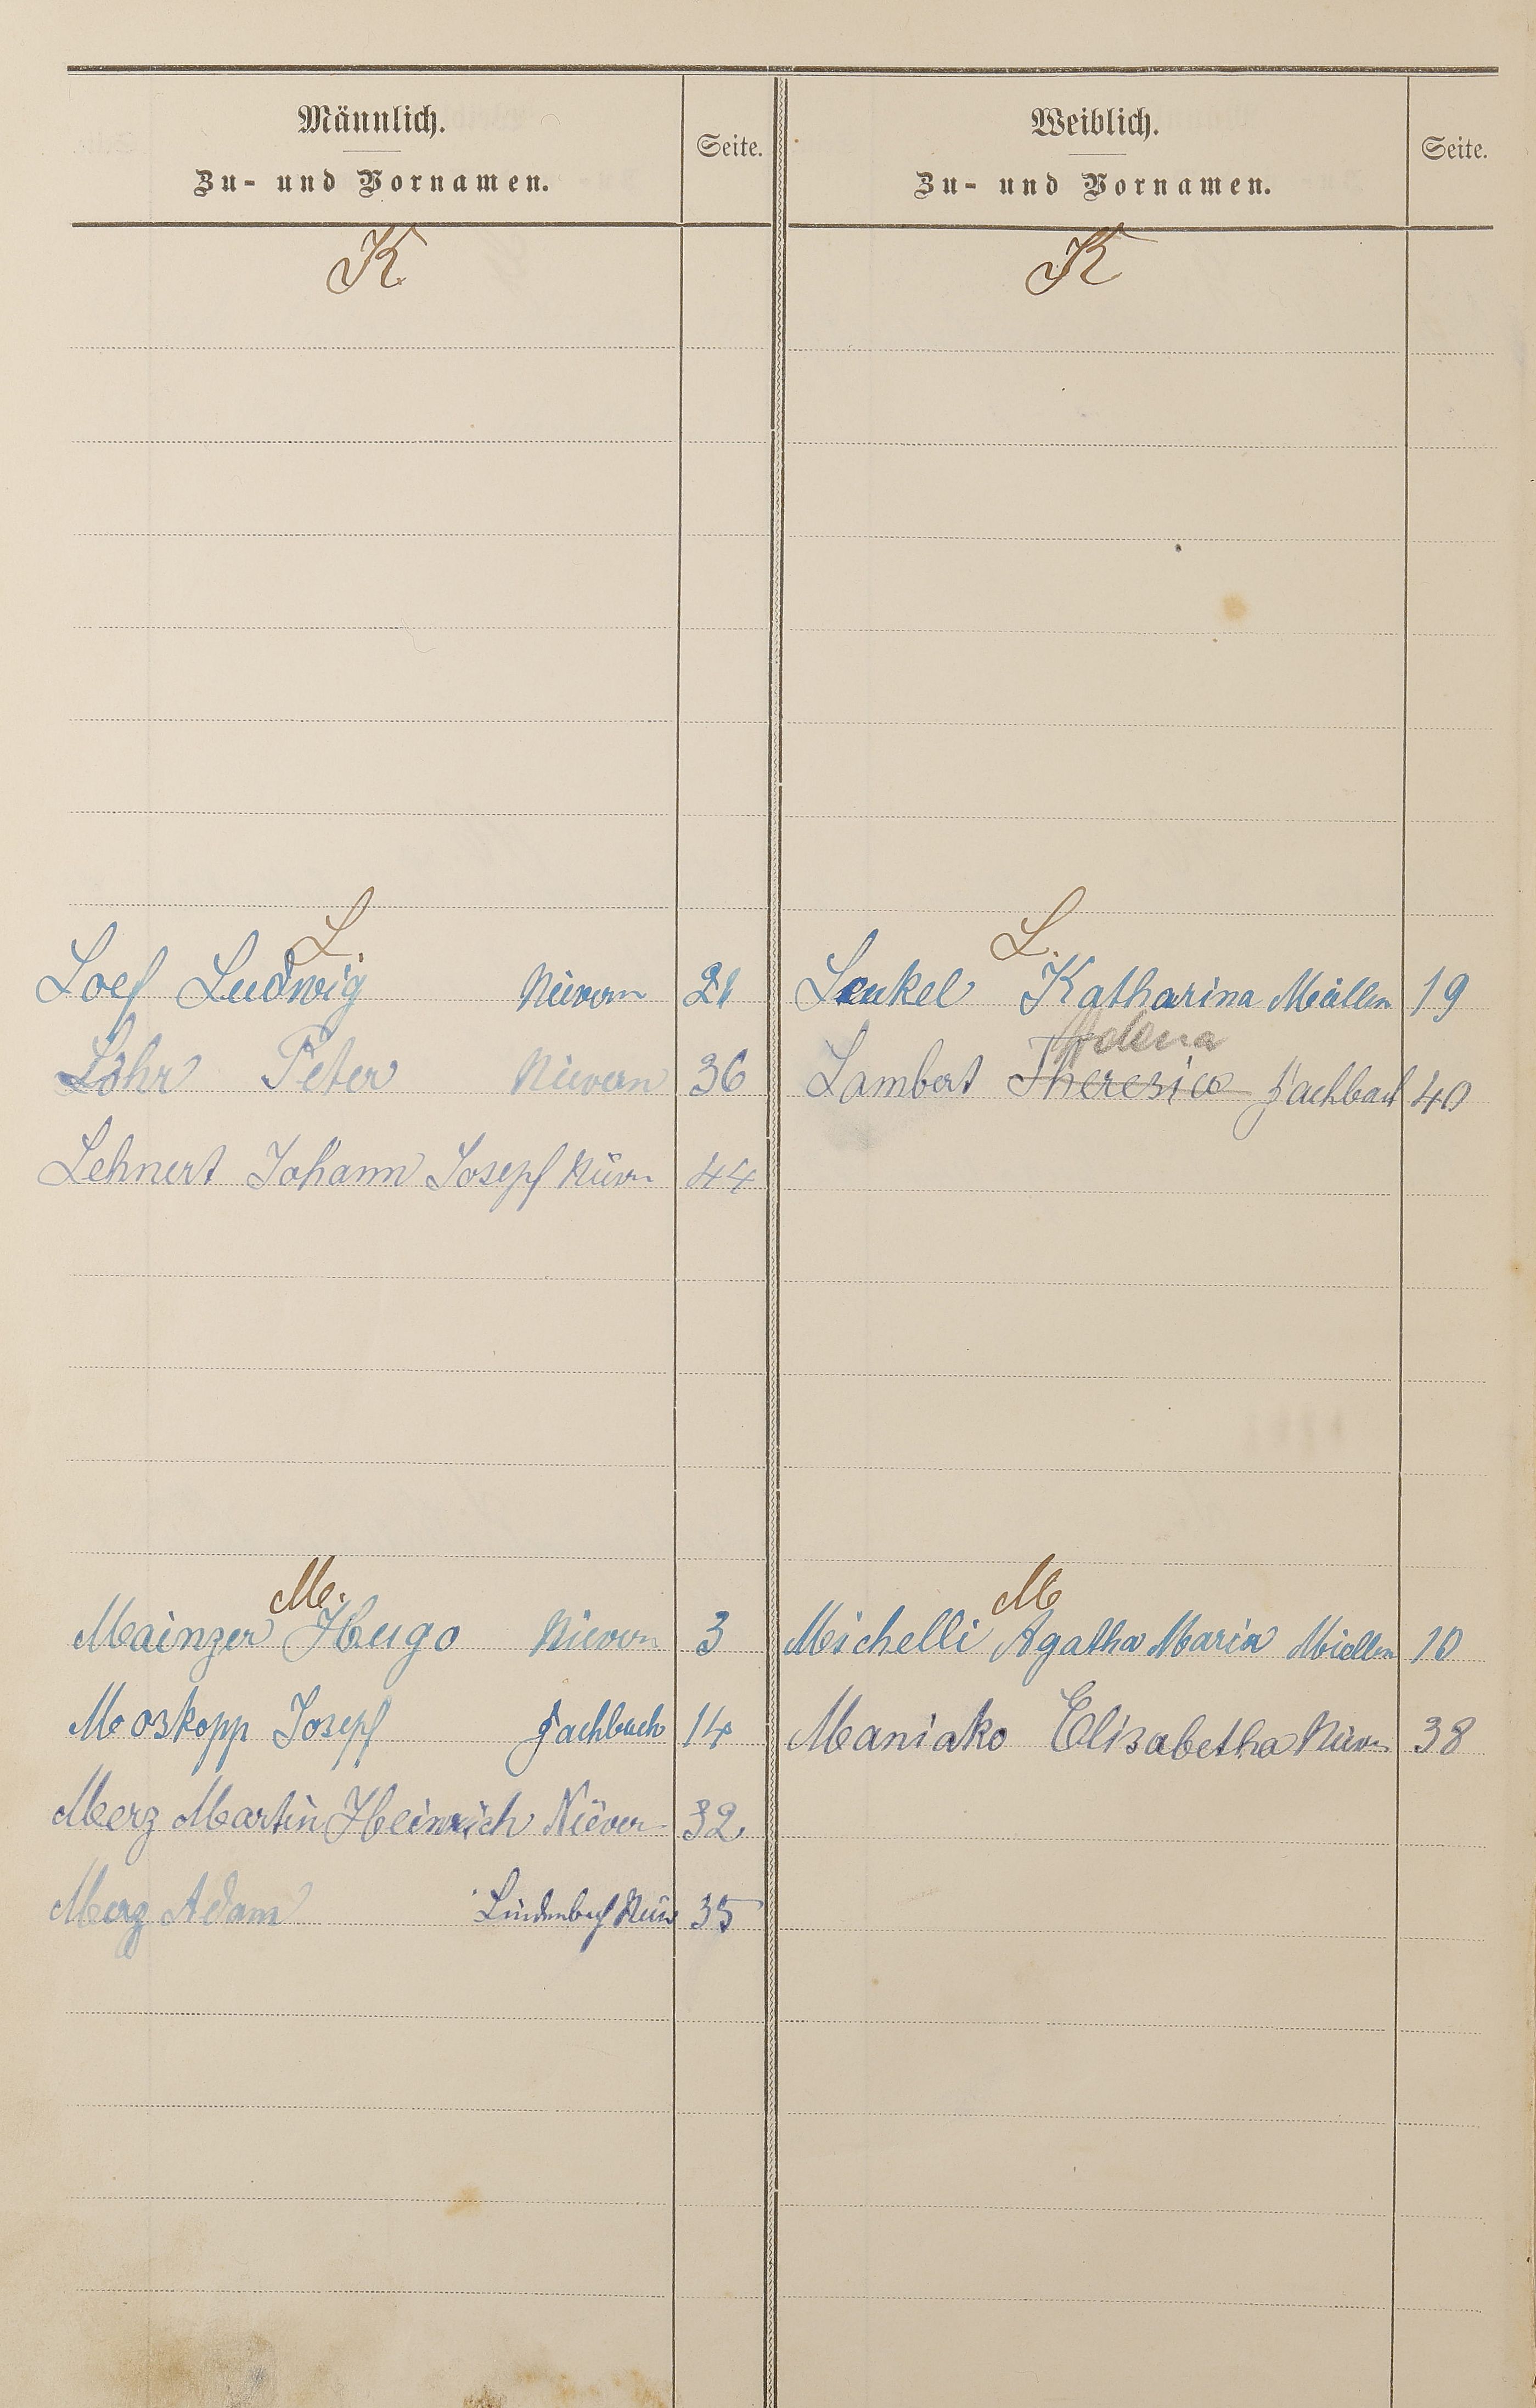 Männlich.
Zu- und Vornamen.
Seite.
K
L.
Loef Ludwig Nievern 21
Löhr Peter Nievern 36
Lehnert Johann Josef Nievn 44
M.
Mainzer Hugo Nievern 3
Moskopp Josepf Fachbach 14
Merz Martin Heinrich Niever 32
Merz Adam Lindenbach Niev 35
Weiblich.
Zu- und Vornamen.
Seite.
K
L.
Katharina Miellen 19
Helena
Lambert Theresia Fachbach 40
M
Michelli Agatha Maria Miellen 10
Maniako Elisabetha Nievn 38